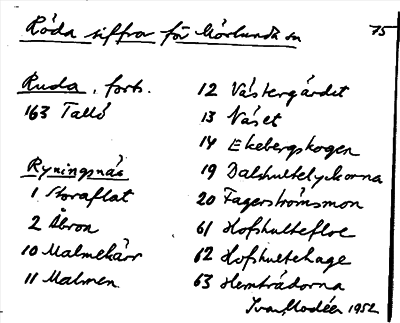 Röda siffror för Mörlunda sn
75
Ruda, forts.
163 Tallö
Ryningsnäs
1 Storaflat
2 Åbron
10 Malmekärr
11 Malmen
12 Västergärdet
13 Näset
14 Ekebergskogen
19 Dalshultelyckorna
20 Fagerströmsmon
61 Hofshultefloe
62 Hofshultehage
63 Hemträdorna
Ivar Modéer 1952